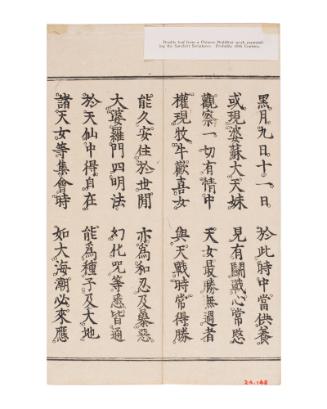 Double leaf from a Chinese Buddhist work, present-
ing the Sanskrit Scriptures. Probably 18th Century.
黑月九日十一日 於此時中當供養
或現婆蘇大天妹 見有鬪戰心常愍
觀察一切有情中 天女最勝無過者
權現牧牛歡喜女 與天戰時常得勝
能久安住於世間 亦為和忍及暴惡
大婆羅門四明法 幻化咒等悉皆通
於天仙中得自在 能為種子及大地
諸天女等集會時 如大海潮必來應
24.148